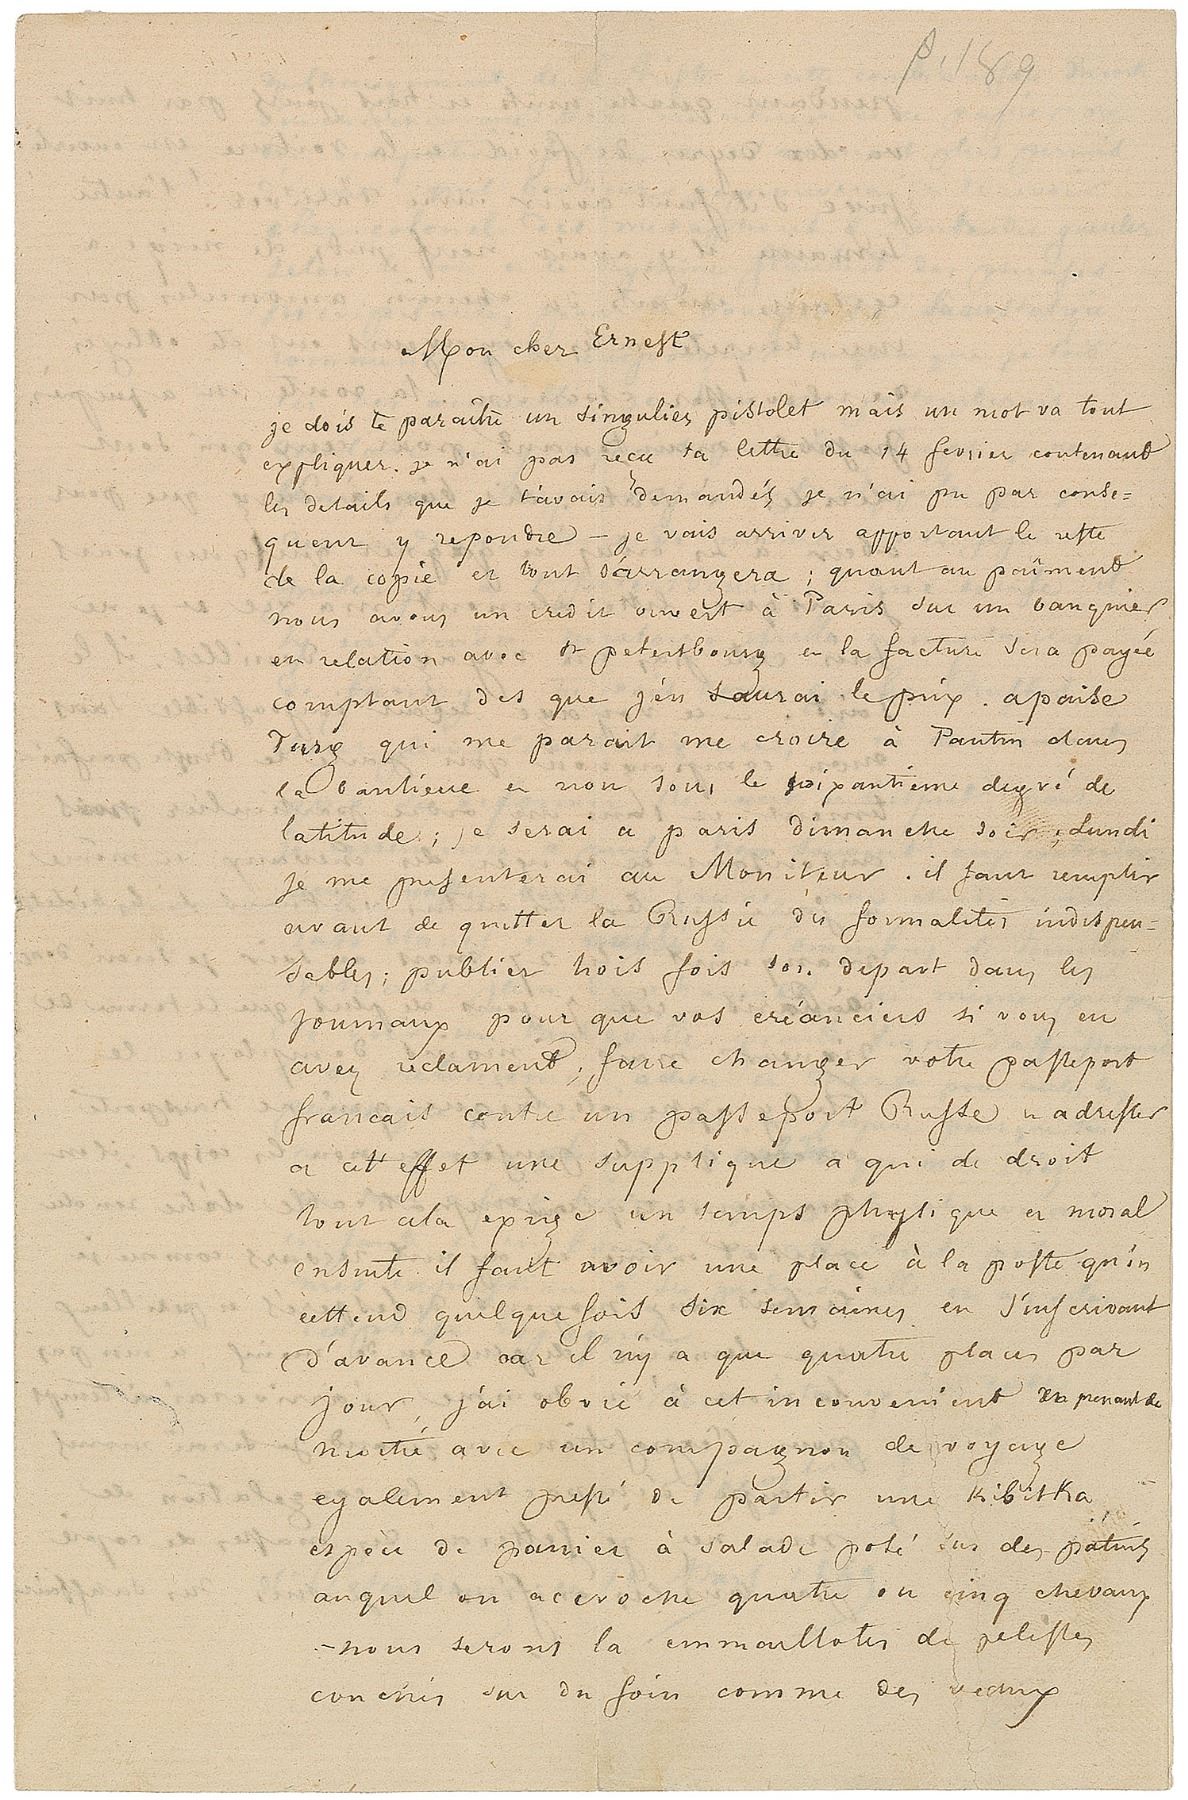 p. 189
Mon cher Ernest
je dois te paraitre un singulier pistolet mais un mot va tout
expliquer. je n'ai pas recu ta lettre du 14 fevrier contenant
les details que je t'avais demandés je n'ai pu par conse=
quent y repondre – je vais arriver apportant le reste
de la copie et tout s'arrangera ; quant au paîment
nous avons un credit ouvert à Paris sur un banquier
en relation avec st petersbourg et la facture sera payée
comptant des que j'en saurai le prix . apaise
Turg qui me parait me croire à Pantin dans
la banlieue et non sous le soixantieme degré de
latitude ; je serai a paris dimanche soir ; Lundi
je me presenterai au Moniteur . il faut remplir
avant de quitter la Russie des formalités indispen=
sables ; publier trois fois son depart dans les
journaux pour que vos créanciers si vous en
avez reclament ; faire changer votre passeport
francais contre un passeport Russe et adresser
a cet effet une supplique a qui de droit
tout cela exige un temps physique et moral
ensuite il faut avoir une place à la poste qu'on
attend quelquefois six semaines en s'inscrivant
d'avance car il n'y a que quatre places par
jour, j'ai obvié à cet inconvenient en prenant de
moitié avec un compagnon de voyage
egalement pressé de partir une Kibitka
espèce de panier à salade posé sur des patins
auquel on accroche quatre ou cinq chevaux
– nous serons la emmaillotés de pelisses
couchés sur du foin comme des veaux